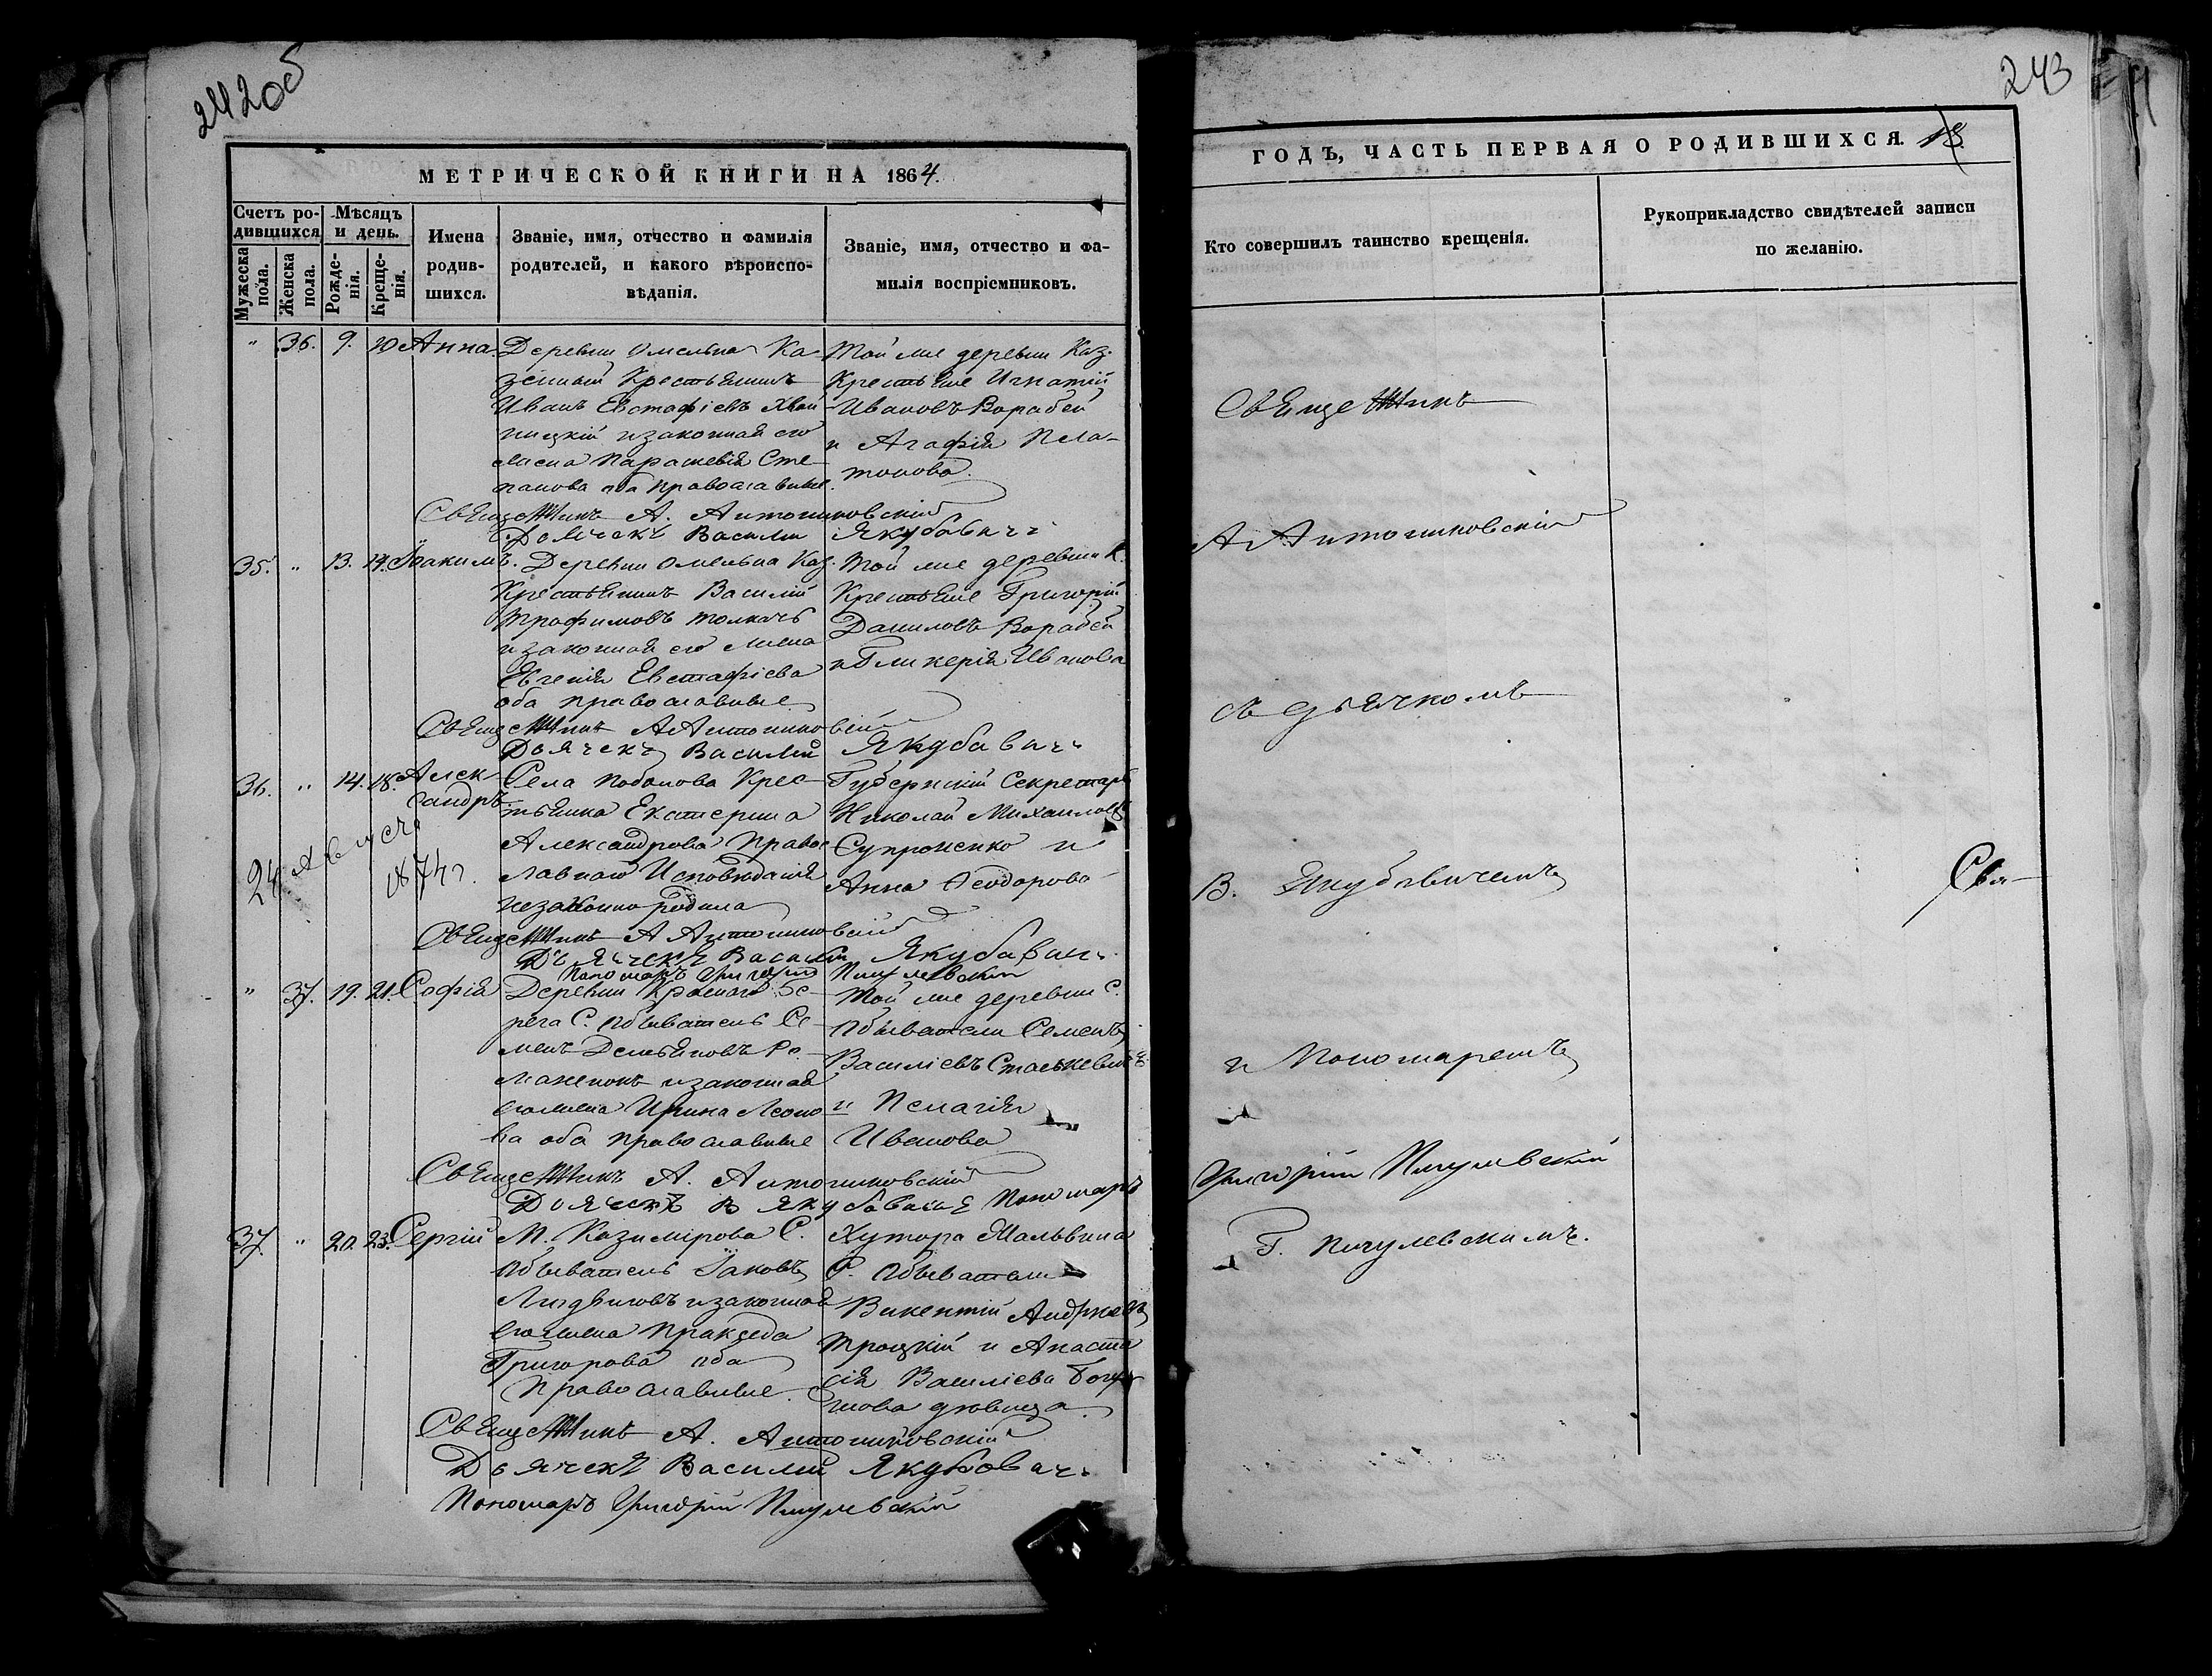 242об
МЕТРИЧЕСКОЙ КНИГИ НА 1864.
Счетъ ро-
дившихся
Мѣсяцъ
и день.
Мужеска
пола.
Женска
пола.
Рожде-
нія.
Креще-
нія.
Имена
родив-
шихся.
Званіе, имя, отчество и фамилія
родителей, и какого вѣроиспо-
вѣданія.
Званіе, имя, отчество и фа-
милія воспріемниковъ.
" 36. 9. 10 Анна.
Деревни Омельна Ка-
зенный Крестьянинъ
Иванъ Евстафіевъ Хвой
ницкій и законная его
жена Параскевія Сте-
панова оба православные.
Той же деревни Каз.
Крестьяне Игнатій
Ивановъ Варабей
и Агафія Пла-
тонова.
Священникъ А. Антониковскій
Дьячекъ Василий Якубовичъ
35. " 13. 14. Іоакимъ.
Деревни Омельна Каз.
Крестьянинъ Василій
Трофимовъ Толкачъ
и законная его жена
Евгенія Евстафіева
оба православные
Той же деревни К.
Крестьяне Григорій
Даниловъ Варабей
и Гликерія Иванова
Священникъ А Антониковскій
Дьячекъ Василий Якубовичъ
36. " 14. 18. Алек
сандръ.
Села Поболова Крес-
тьянка Екатерина
Александрова Правос
лавнаго Исповѣданія
незаконно родила
Губернскій Секретарь
Николай Михаиловъ
Супроненко и
Анна Ѳеодорова
24 Августа
1874 г.
Священникъ А Антониковскій
Дьячекъ Василий Якубович.
Пономарь Григорій Пигулевскій
" 37. 19. 21. Софія
Деревни Краснаго Бе-
рега С. Обыватель Се-
менъ Демьяновъ Ро-
маненокъ и законная
его жена Ирина Леоно
ва оба православные
Той же деревни С.
Обыватели Семенъ
Василіевъ Стаськевичъ
и Пелагія
Иванова
Священникъ А. Антониковскій
Дьячекъ В Якубовичъ Пономарь
37. " 20. 23. Сергій
М. Казимірова С.
Обыватель Іаковъ
Людвиговъ и законная
его жена Пракседа
Григорова оба
православные.
Хутора Мальвина
С. Обыватели
Викентій Андреевъ
Троцкій и Анаста
сія Василіева
нова дѣвица.
Священникъ А. Антониковскій
Дьячекъ Василий Якубовичъ
Пономарь Григорій Пигулевскій
243
ГОДЪ, ЧАСТЬ ПЕРВАЯ О РОДИВШИХСЯ.
Кто совершилъ таинство крещенія.
Рукоприкладство свидѣтелей записи
по желанію.
Священникъ
А Антониковскій
съ дьячкомъ
В. Якубовичемъ
Свя-
и Пономаремъ
Григорій Пигулевскій
Г. Пигулевскимъ.